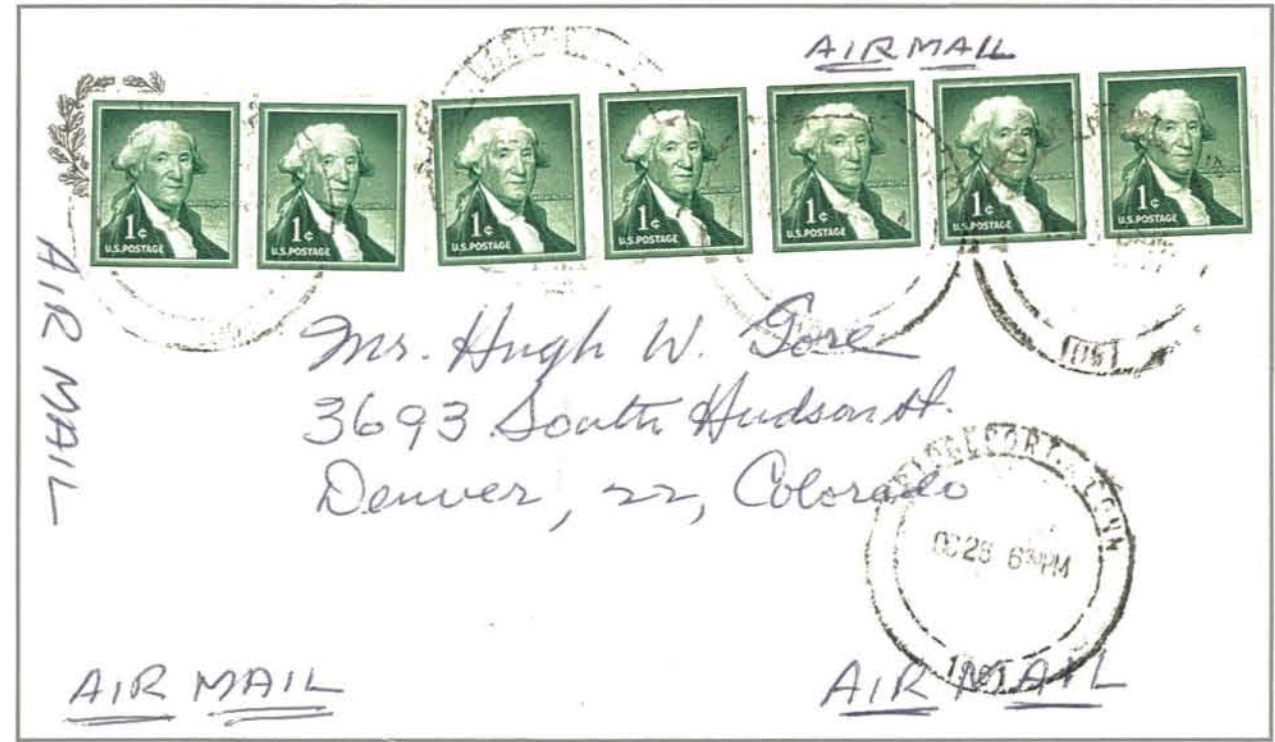 AIR MAIL
1¢ U.S. POSTAGE
1¢ U.S. POSTAGE
1¢ U.S. POSTAGE
1¢ U.S. POSTAGE
1¢ U.S. POSTAGE
1¢ U.S. POSTAGE
1¢ U.S. POSTAGE
AIR MAIL
Mr. Hugh W. Gore
3693 South Hudson St.
Denver, 22, Colorado
BRIDGEPORT, CONN
6 30 PM
AIR MAIL
AIR MAIL